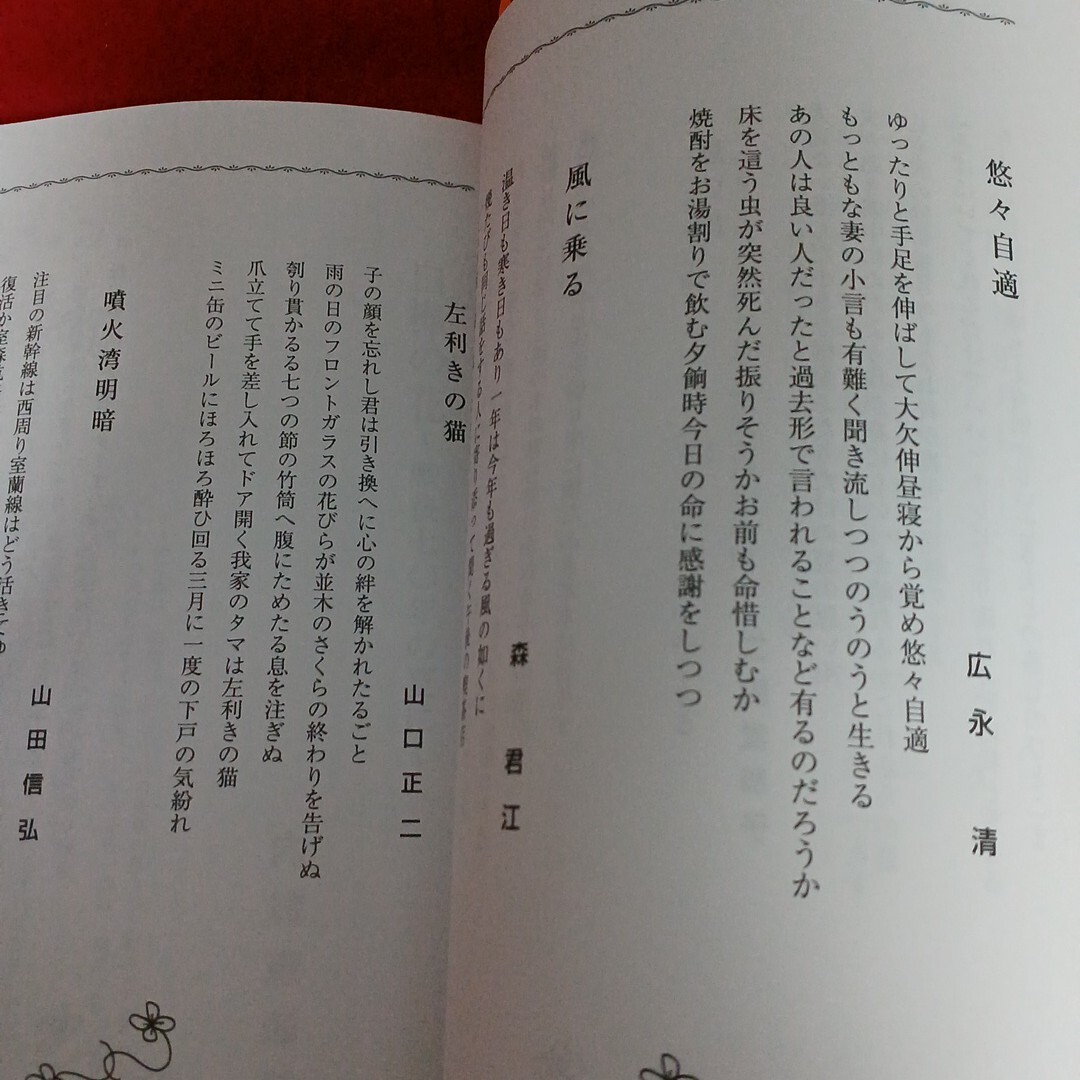 悠々自適
広永 清
ゆったりと手足を伸ばして大欠伸昼寝から覚め悠々自適
もっともな妻の小言も有難く聞き流しつつのうのうと生きる
あの人は良い人だったと過去形で言われることなど有るのだろうか
床を這う虫が突然死んだ振りそうかお前も命惜しむか
焼酎をお湯割りで飲む夕餉時今日の命に感謝をしつつ
風に乗る
森 君江
温き日も寒き日もあり一年は今年も過ぎる風の如くに
も同じ話をする人に寄り添って聞く午後の
左利きの猫
山口正二
子の顔を忘れし君は引き換へに心の絆を解かれたるごと
雨の日のフロントガラスの花びらが並木のさくらの終わりを告げぬ
刳り貫かるる七つの節の竹筒へ腹にためたる息を注ぎぬ
爪立てて手を差し入れてドア開く我家のタマは左利きの猫
ミニ缶のビールにほろほろ酔ひ回る三月に一度の下戸の気紛れ
噴火湾明暗
山田信弘
注目の新幹線は西周り室蘭線はどう活きてゆ
復活か室蘭